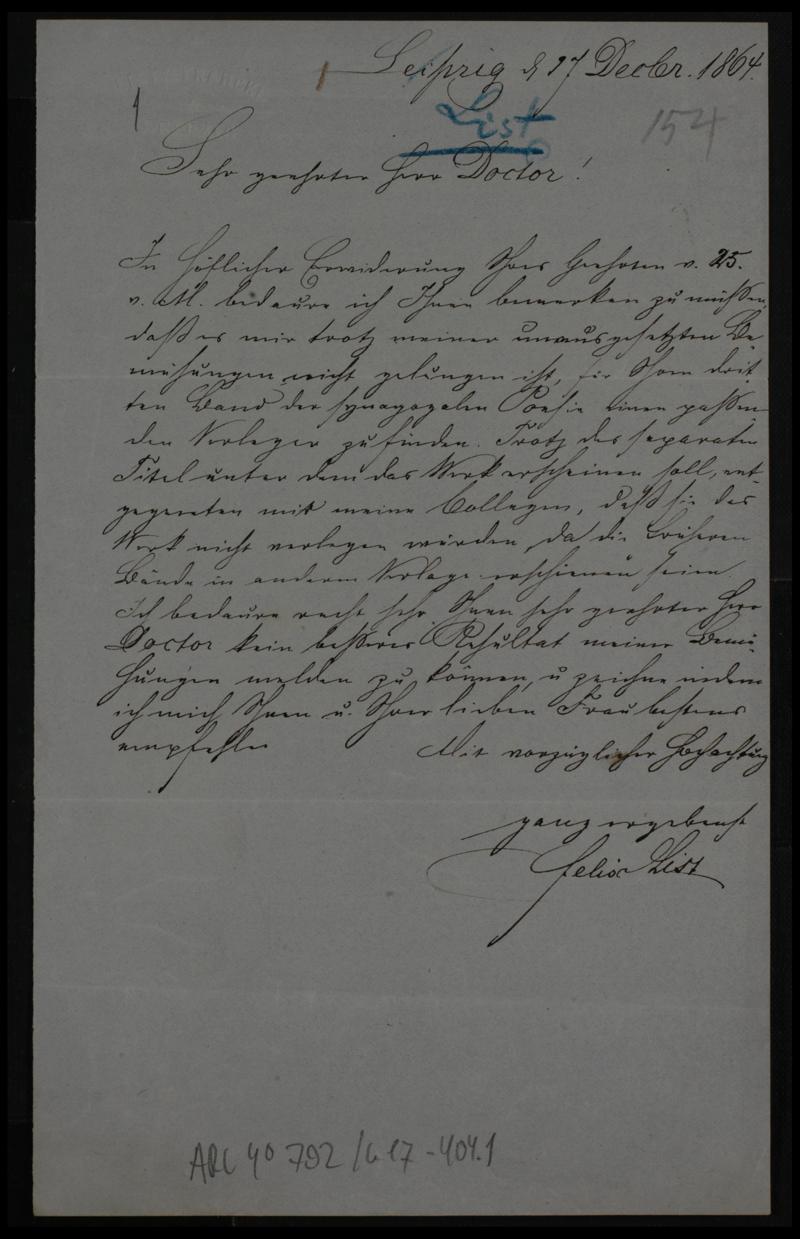 Leipzig d 17 Decbr. 1864.
List
154
Sehr geehrter Herr Doctor!
In höflicher Erwiderung Ihres Geehrten v. 25.
v. M. bedaure ich Ihnen bemerken zu müssen,
daß es mir trotz meiner unausgesetzten Be-
mühungen nicht gelungen ist, für Ihren drit-
ten Band der synagogalen Poesie einen passen-
den Verleger zu finden. Trotz des separaten
Titel unter dem das Werk erscheinen soll, ent-
gegneten mir meine Collegen, daß sie das
Werk nicht verlegen würden, da die früheren
Bände in anderem Verlage erschienen seien.
Ich bedaure recht sehr Ihnen sehr geehrter Herr
Doctor kein besseres Resultat meiner Bemü-
hungen melden zu können, u zeichne indem
ich mich Ihnen u. Ihrer lieben Frau bestens
empfehle
Mit vorzüglicher Hochachtung
ganz ergebenst
Felix List
ARC 4o 792 /G17-404.1